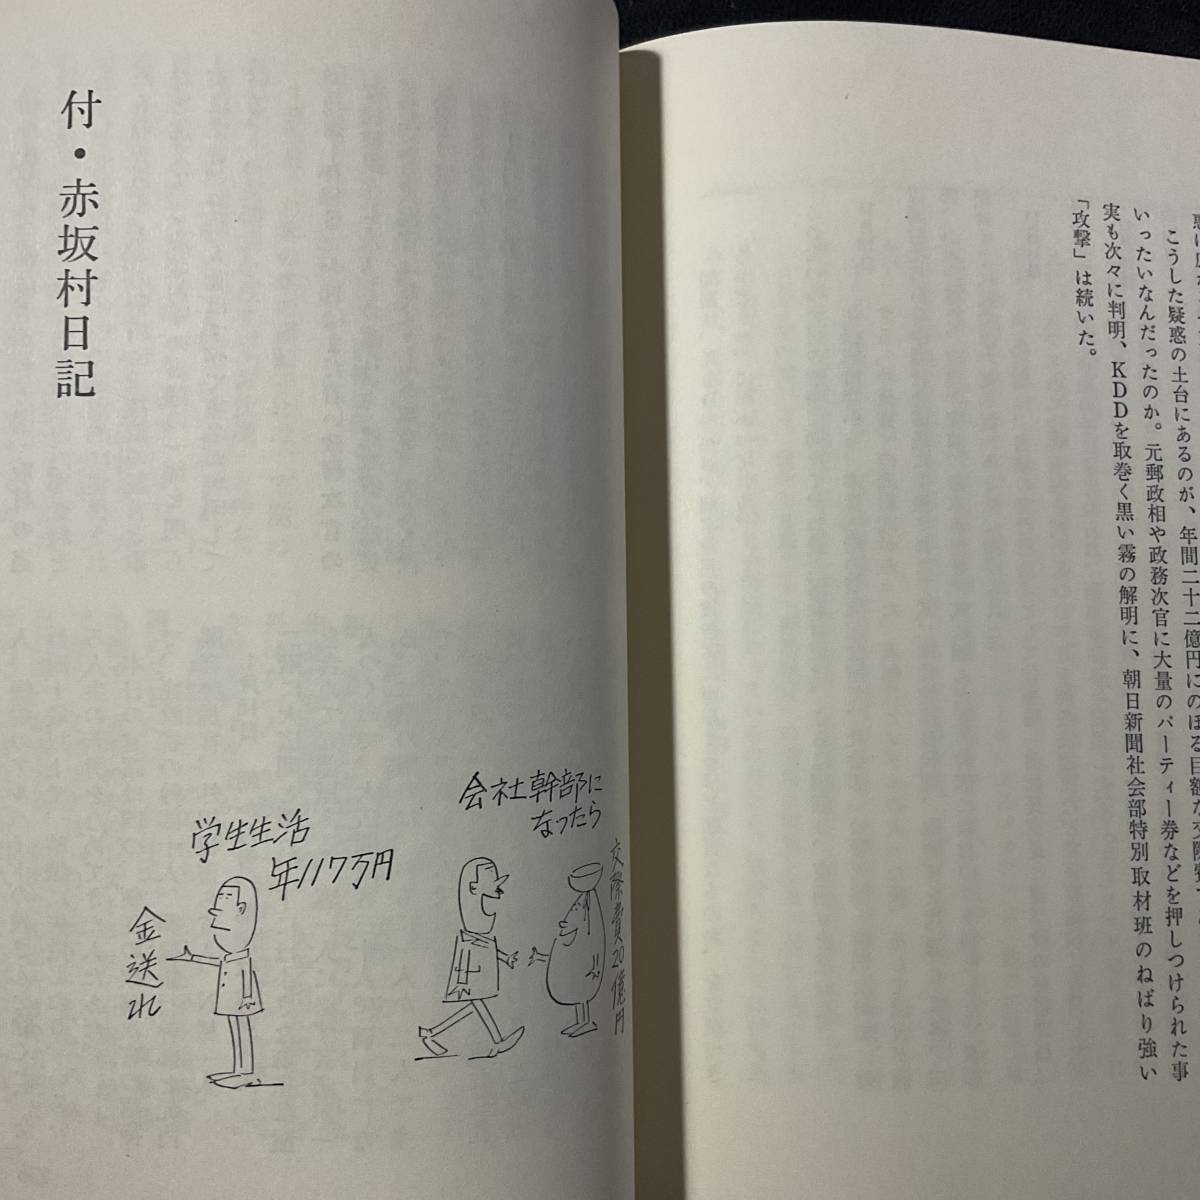 こうした疑惑の土台にあるのが、年間二十二億円にのぼる巨額な交際費
いったいなんだったのか。元郵政相や政務次官に大量のパーティー券などを押しつけられた事
実も次々に判明、KDDを取巻く黒い霧の解明に、朝日新聞社会部特別取材班のねばり強い
「攻撃」は続いた。
付・赤坂村日記
会社幹部に
なったら
交際費20億円
学生生活
年117万円
金送れ